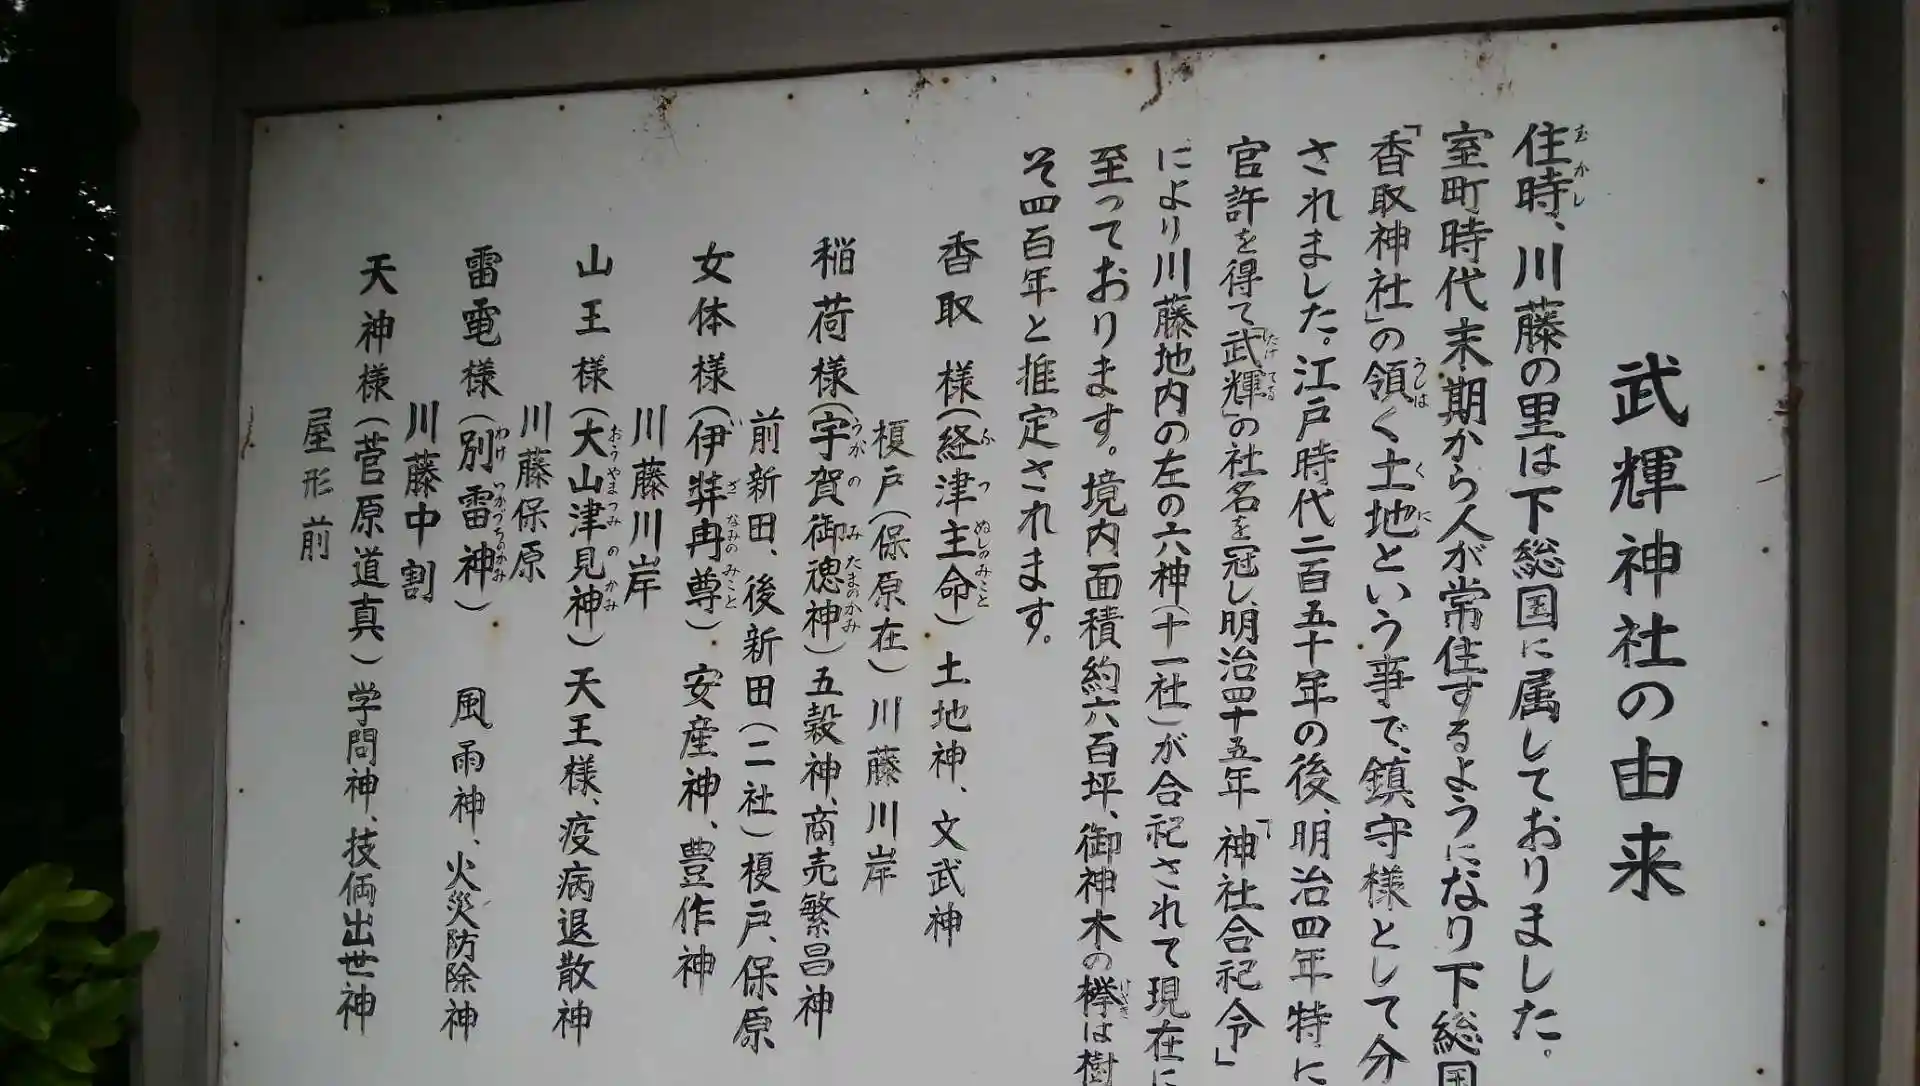 武輝神社の由来
住時、川藤の里は下総国に属しておりました。
室町時代末期から人が常住するようになり下総国
「香取神社」の領く土地という事で、鎮守様として分
されました。江戸時代二百五十年の後、明治四年特に
官許を得て「武輝」の社名を冠し、明治四十五年「神社合祀令」
により川藤地内の左の六神(十一社)が合祀されて現在に
至っております。境内面積約六百坪、御神木の欅は樹
そ四百年と推定されます。
香取様(経津主命)土地神、文武神
榎戸(保原在)川藤川岸
稲荷様(宇賀御魂神)五穀神、商売繁昌神
前新田、後新田(二社)榎戸、保原
女体様(伊弉冉尊)安産神、豊作神
川藤川岸
山王様(大山津見神)天王様、疫病退散神
川藤保原
雷電様(別雷神)風雨神、火災防除神
川藤中割
天神様(菅原道真)学問神、技倆出世神
屋形前